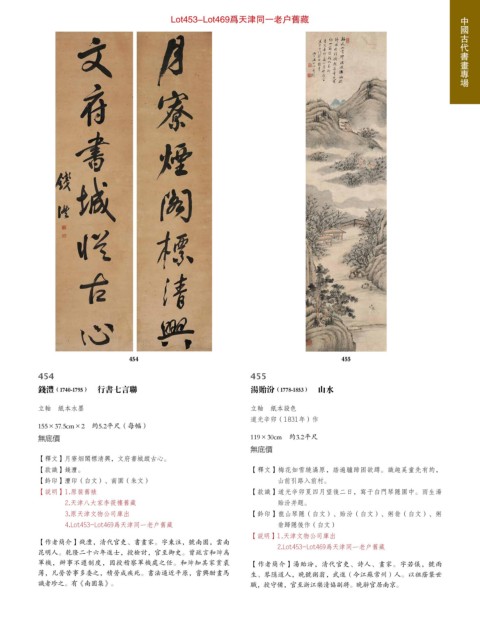 Lot453-Lot469爲天津同一老户舊藏
中國古代書畫專場
月寮煙閣標清興
文府書城從古心
錢灃
454
455
454
錢灃（1740-1795） 行書七言聯
立軸 紙本水墨
155×37.5cm×2 約5.2平尺（每幅）
無底價
【釋文】月寮烟閣標清興，文府書城縱古心。
【款識】錢灃。
【鈐印】灃印（白文）、南園（朱文）
【說明】1.原裝舊裱
2.天津八大家李善樓舊藏
3.原天津文物公司庫出
4.Lot453-Lot469爲天津同一老户舊藏
【作者簡介】錢灃，清代官吏、書畫家。字東注，號南園，雲南
昆明人。乾隆二十六年進士，授檢討，官至御史。曾疏言和珅爲
軍機，辦事不遵制度，因授稽察軍機處之任。和珅知其家貧衣
薄，凡勞苦事多委之，積勞成疾死。書法通近平原，嘗興酣畫馬
識者珍之。有《南園集》。
455
湯貽汾（1778-1853） 山水
立軸 紙本設色
道光辛卯（1831年）作
119×30cm 約3.2平尺
無底價
【釋文】梅花如雪繞溪原，踏遍驢蹄困欲蹲。
山前引路入前村。
【款識】道光辛卯夏四月望後二日，寫于白門琴隱園中。雨生湯
貽汾并題。
【說明】1.天津文物公司庫出
2.Lot453-Lot469爲天津同一老户舊藏
【作者簡介】湯貽汾，清代官吏、詩人、畫家。字若儀，號雨
生、琴隱道人，晚號粥翁，武進（今江蘇常州）人。以祖蔭襲世
職，授守備，官至浙江樂清協副將。晚辭官居南京。